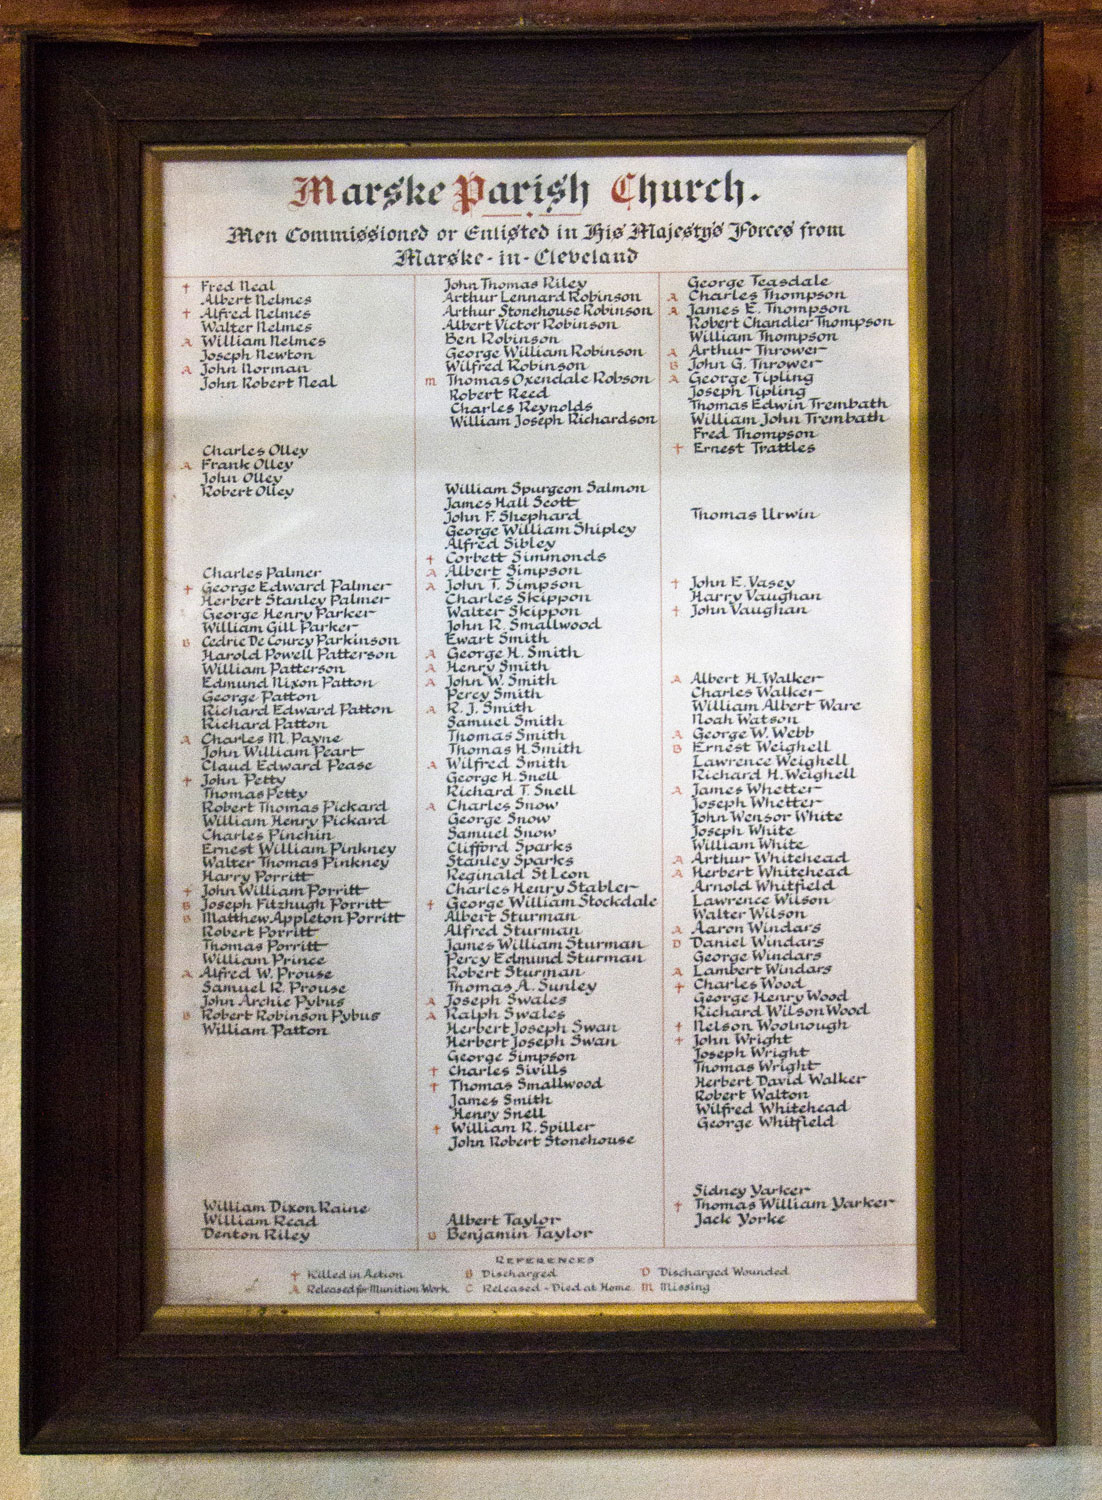 Marske Parish Church.
Men Commissioned or Enlisted in His Majesty's Forces from
Marske-in-Cleveland
† Fred Neal
Albert Nelmes
† Alfred Nelmes
Walter Nelmes
A William Nelmes
Joseph Newton
A John Norman
John Robert Neal
Charles Olley
A Frank Olley
John Olley
Robert Olley
Charles Palmer
† George Edward Palmer
Herbert Stanley Palmer
George Henry Parker
William Gill Parker
B Cedric De Courcy Parkinson
Harold Powell Patterson
William Patterson
Edmund Nixon Patton
George Patton
Richard Edward Patton
Richard Patton
A Charles M. Payne
John William Peart
Claud Edward Pease
† John Petty
Thomas Petty
Robert Thomas Pickard
William Henry Pickard
Charles Pinchin
Ernest William Pinkney
Walter Thomas Pinkney
Harry Porritt
† John William Porritt
B Joseph Fitzhugh Porritt
B Matthew Appleton Porritt
Robert Porritt
Thomas Porritt
William Prince
A Alfred W. Prouse
Samuel R. Prouse
John Archie Pybus
B Robert Robinson Pybus
William Patton
William Dixon Raine
William Read
Denton Riley
John Thomas Riley
Arthur Lennard Robinson
Arthur Stonehouse Robinson
Albert Victor Robinson
Ben Robinson
George William Robinson
Wilfred Robinson
M Thomas Oxendale Robson
Robert Reed
Charles Reynolds
William Joseph Richardson
William Spurgeon Salmon
James Hall Scott
John F. Shephard
George William Shipley
Alfred Sibley
† Corbett Simmonds
A Albert Simpson
A John T. Simpson
Charles Skippon
Walter Skippon
John R. Smallwood
Ewart Smith
A George H. Smith
A Henry Smith
A John W. Smith
Percy Smith
A R. J. Smith
Samuel Smith
Thomas Smith
Thomas H. Smith
A Wilfred Smith
George H. Snell
Richard T. Snell
A Charles Snow
George Snow
Samuel Snow
Clifford Sparks
Stanley Sparks
Reginald St Leon
Charles Henry Stabler
† George William Stockdale
Albert Sturman
Alfred Sturman
James William Sturman
Percy Edmund Sturman
Robert Sturman
Thomas A. Sunley
A Joseph Swales
A Ralph Swales
Herbert Joseph Swan
Herbert Joseph Swan
George Simpson
† Charles Sivills
† Thomas Smallwood
James Smith
Henry Snell
† William R. Spiller
John Robert Stonehouse
Albert Taylor
B Benjamin Taylor
George Teasdale
A Charles Thompson
A James E. Thompson
Robert Chandler Thompson
William Thompson
A Arthur Thrower
B John G. Thrower
A George Tipling
Joseph Tipling
Thomas Edwin Trembath
William John Trembath
Fred Thompson
† Ernest Trattles
Thomas Urwin
† John E. Vasey
Harry Vaughan
† John Vaughan
A Albert H. Walker
Charles Walker
William Albert Ware
Noah Watson
A George W. Webb
B Ernest Weighell
Lawrence Weighell
Richard H. Weighell
A James Whetter
Joseph Whetter
John Wensor White
Joseph White
William White
A Arthur Whitehead
A Herbert Whitehead
Arnold Whitfield
Lawrence Wilson
Walter Wilson
A Aaron Windars
D Daniel Windars
George Windars
A Lambert Windars
† Charles Wood
George Henry Wood
Richard Wilson Wood
† Nelson Woolnough
† John Wright
Joseph Wright
Thomas Wright
Herbert David Walker
Robert Walton
Wilfred Whitehead
George Whitfield
Sidney Yarker
† Thomas William Yarker
Jack Yorke
References
† Killed in Action B Discharged D Discharged Wounded
A Released for Munition Work C Released - Died at Home M Missing